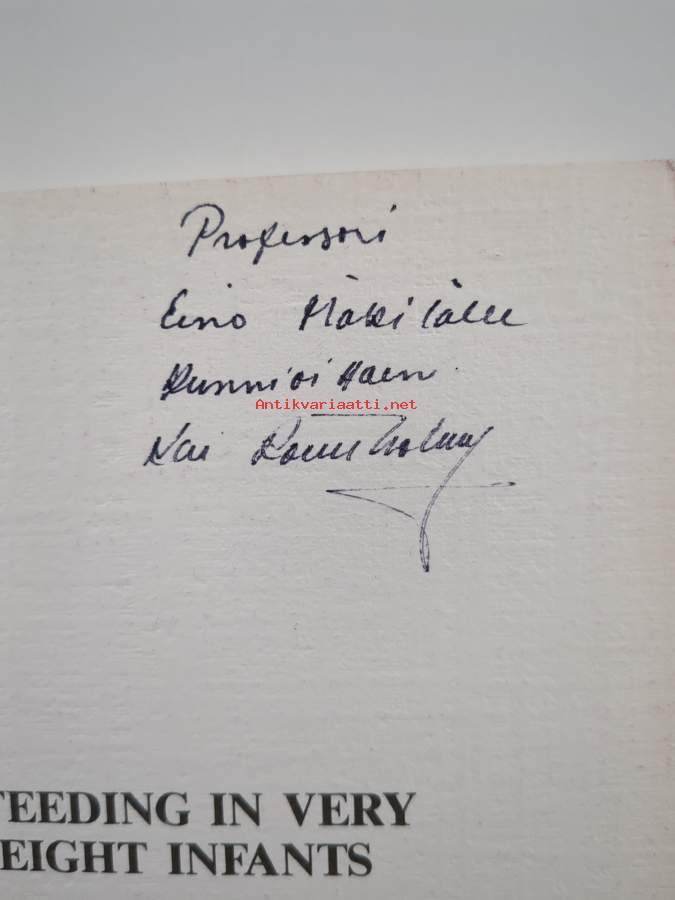 Professori
Eino Mäkilälle
Kunnioittaen
Antikvariaatti.net
Kai
FEEDING IN VERY
EIGHT INFANTS